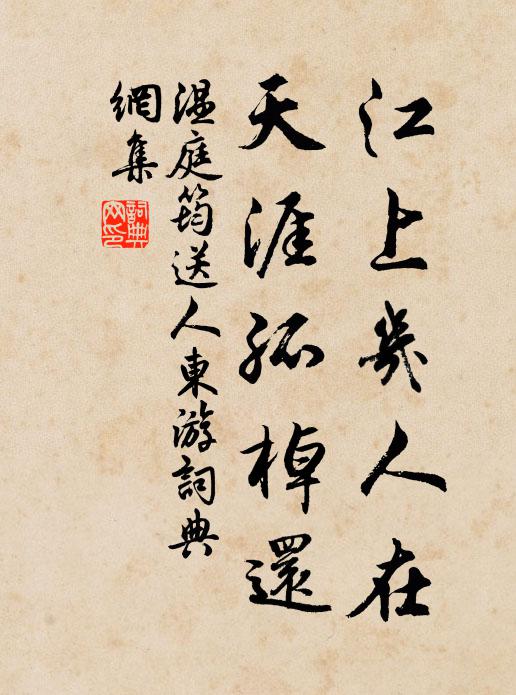 江上幾人在
天涯孤棹還
温庭筠送人東游詞典
網集
詞典
网印